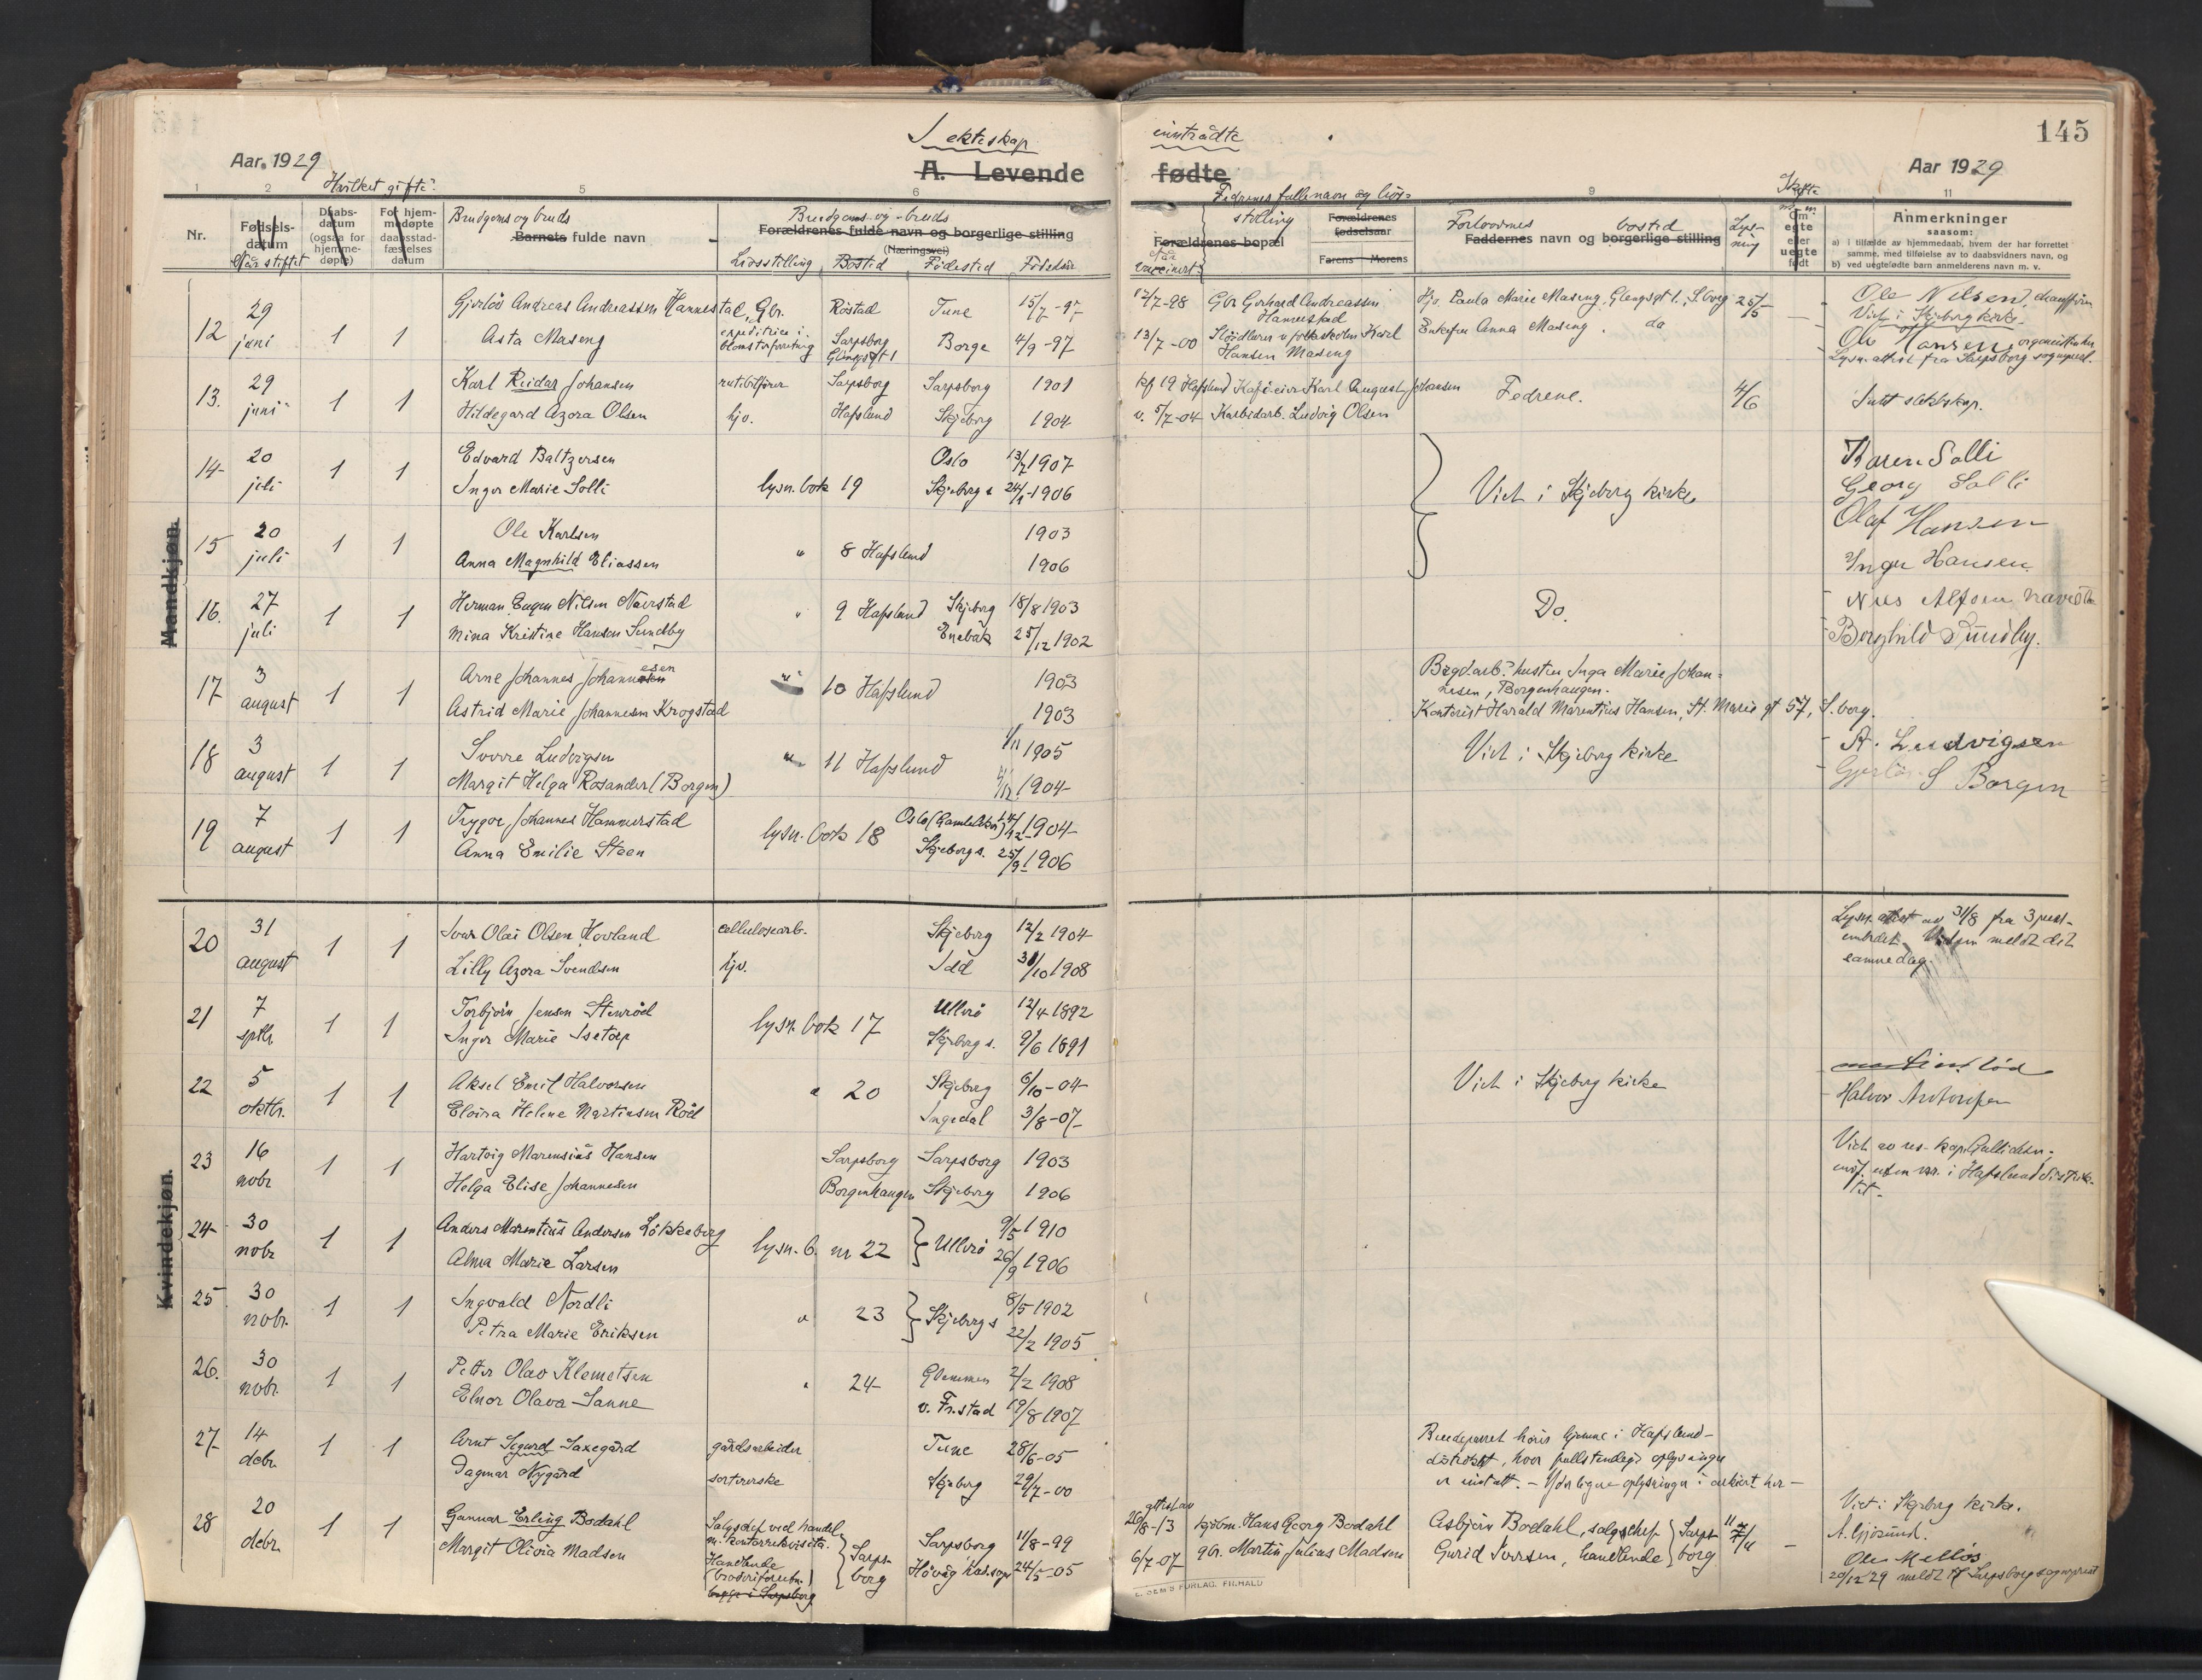 145
I ekteskap inntrådte
Aar 1929
A. Levende fødte
Aar 1929
Hvilket gifte?
1 2 5 6 9 11
Nr.
Fødsels-datum
Når stiftet
Daabs-datum (ogsaa for hjemme-døpte)
For hjem-medøpte daabsstad-fæstelses datum
Brudgoms og bruds
Barnets fulde navn
Brudgoms og bruds
Forældrenes fulde navn og borgerlige stilling
(Næringsvei)
Livsstilling Bosted Fødested Fødselsår
Fedrenes fulle navn og livs-
stilling
Forældrenes bopæl
Når vaccinert?
Forældrenes fødselsaar
Farens Morens
Forlovernes bosted
Faddernes navn og borgerlige stilling
Lys-ning
Om egte eller uegte født
Anmerkninger
saasom:
a) i tilfælde av hjemmedaab, hvem der har forrettet
samme, med tilføielse av to daabsvidners navn, og
b) ved uegtefødte barn anmelderens navn m. v.
Mandkjøn.
12 29 juni 1 1
Gjerløv Andreas Andreassen Hannestad, Gbr. Röstad Tune 15/7-97
12/7-98 Gbr Gerhard Andreassen Hannestad
Hjv. Paula Marie Maseng, Glengsgt 1, S.borg 25/5
Ole Nilsen, chauffør
Asta Maseng
expeditrice i blomsterforretning Sarpsborg Glengsgt 1 Borge 4/9-97
13/7-00 Slöidlærer v folkeskolen Karl Hansen Maseng
Enkefru Anna Maseng. do
Viet i Skjeberg kirke.
Ole Hansen, organist
Lysn.attest fra Sarpsborg sogneprest.
13. 29 juni 1 1
Karl Reidar Johansen rutebilfører Sarpsborg Sarpsborg 1901
kf 19 Hafslund Kafé-eier Karl August Johansen
Fedrene. 4/6
Intet slektskap.
Hildegard Azora Olsen hjv. Hafslund Skjeberg 1904
v. 5/7-04 Karbidarb. Ludvig Olsen
14 20 juli 1 1
Edvard Baltzersen Oslo 13/7 1907
Inger Marie Solli lysn. bok 19 Skjeberg s 24/1-1906
Viet i Skjeberg kirke
Karen Solli
Georg Solli
15 20 juli 1 1
Ole Karlsen 1903
Anna Magnhild Eliassen " 8 Hafslund 1906
Olaf Hansen
Inger Hansen
16. 27 juli 1 1
Herman Eugen Nilsen Navestad " 9 Hafslund Skjeberg 18/8 1903
Nina Kristine Hansen Sundby Enebak 25/12 1902
Do.
Borghild Sundby.
17 3 august 1 1
Arne Johannes Johannesen 1903
Astrid Marie Johannesen Krogstad " 10 Hafslund 1903
Bygd.arb.? hustru Inga Marie Johan-
nesen, Borgenhaugen.
Kontorist Harald Marentius Hansen, St. Marie gt 57, S.borg.
18 3 august 1 1
Sverre Ludvigsen 1905
Margit Helga Rosander (Borgen) " 11 Hafslund 1904
Viet i Skjeberg kirke
A. Ludvigsen
S Borgen
19 7 august 1 1
Trygve Johannes Hammerstad Oslo (Gamle Aker) 1904
Anna Emilie Steen lysn. bok 18 Skjeberg s. 25/9 1906
Kvindekjøn.
20 31 august 1 1
Ivar Olai Olsen Hovland cellulosearb. Skjeberg 12/2 1904
Lilly Azora Svendsen hjv. Idd 31/10 1908
Lysn. attest av 31/8 fra prest-
embedet. Vielsen meldt dit
samme dag.
21 7 septbr 1 1
Torbjörn Jensen Stenröd Ullerö 12/4 1892
Inger Marie Isetorp lysn. bok 17 Skjeberg s. 9/6 1891
22 5 oktbr. 1 1
Aksel Emil Halvorsen " 20 Skjeberg 6/10-04
Elvira Helene Martinsen Röd Ingedal 3/8-07
Viet i Skjeberg kirke
Halvor Antonsen
23 16 nobr 1 1
Hartvig Marensius Hansen Sarpsborg Sarpsborg 1903
Helga Elise Johannesen Borgenhaugen Skjeberg 1906
Viet av res. kap. Gullichsen,
innf. uten nr. i Hafslund distrik-
tet.
24 30 nobr 1 1
Anders Marentius Andersen Lökkeberg 9/5 1910
Alma Marie Larsen lysn. b. nr 22 Ullerö 26/9 1906
25 30 nobr. 1 1
Ingvald Nordli 8/5 1902
Petra Marie Eriksen " 23 Skjeberg s 22/2 1905
26. 30 nobr. 1 1
Petter Olav Klemetsen Glemmen 2/2 1908
Elnor Olava Sanne " 24 v. Fr.stad 19/8 1907
27 14 debr. 1 1
Arnt Sigurd Saxegård gårdsarbeider Tune 28/6-05
Dagmar Nygård sorterske Skjeberg 29/7-00
Brudeparret hörer hjemme i Hafslund-
distriktet, hvor fullstendige oplysninger
er inntatt. – Yderligere oplysninger i arkivet her –
28 20 debr. 1 1
Gunnar Erling Bodahl
Salgschef ved handel m. kontorrekvisita. Sarpsborg Sarpsborg 11/8-99
attest av 26/8-13 kjøbm. Hans Georg Bodahl
Asbjörn Bodahl, salgschef Sarpsborg
Margit Olivia Madsen
Handlende (broderiforretn.) Höivåg 24/5-05
6/7-07 gbr. Martin Julius Madsen
Gurid Iversen, handlende
Viet i Skjeberg kirke.
20/12 29 meldt til Sarpsborg sogneprest
E. SEM'S FORLAG. F.HALD